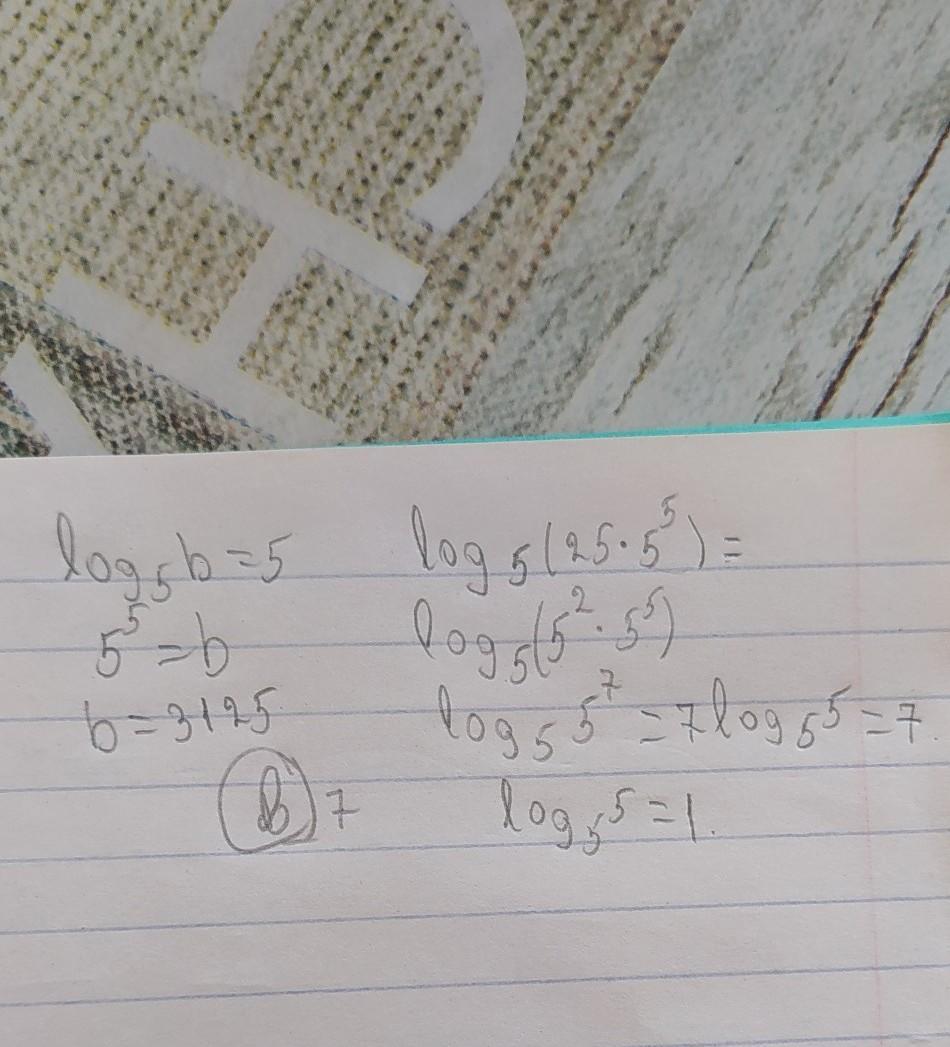 log₅b=5
5⁵=b
b=3125
b) 7
log₅(25·5⁵)=
log₅(5²·5⁵)
log₅5⁷=7log₅5=7.
log₅5=1.